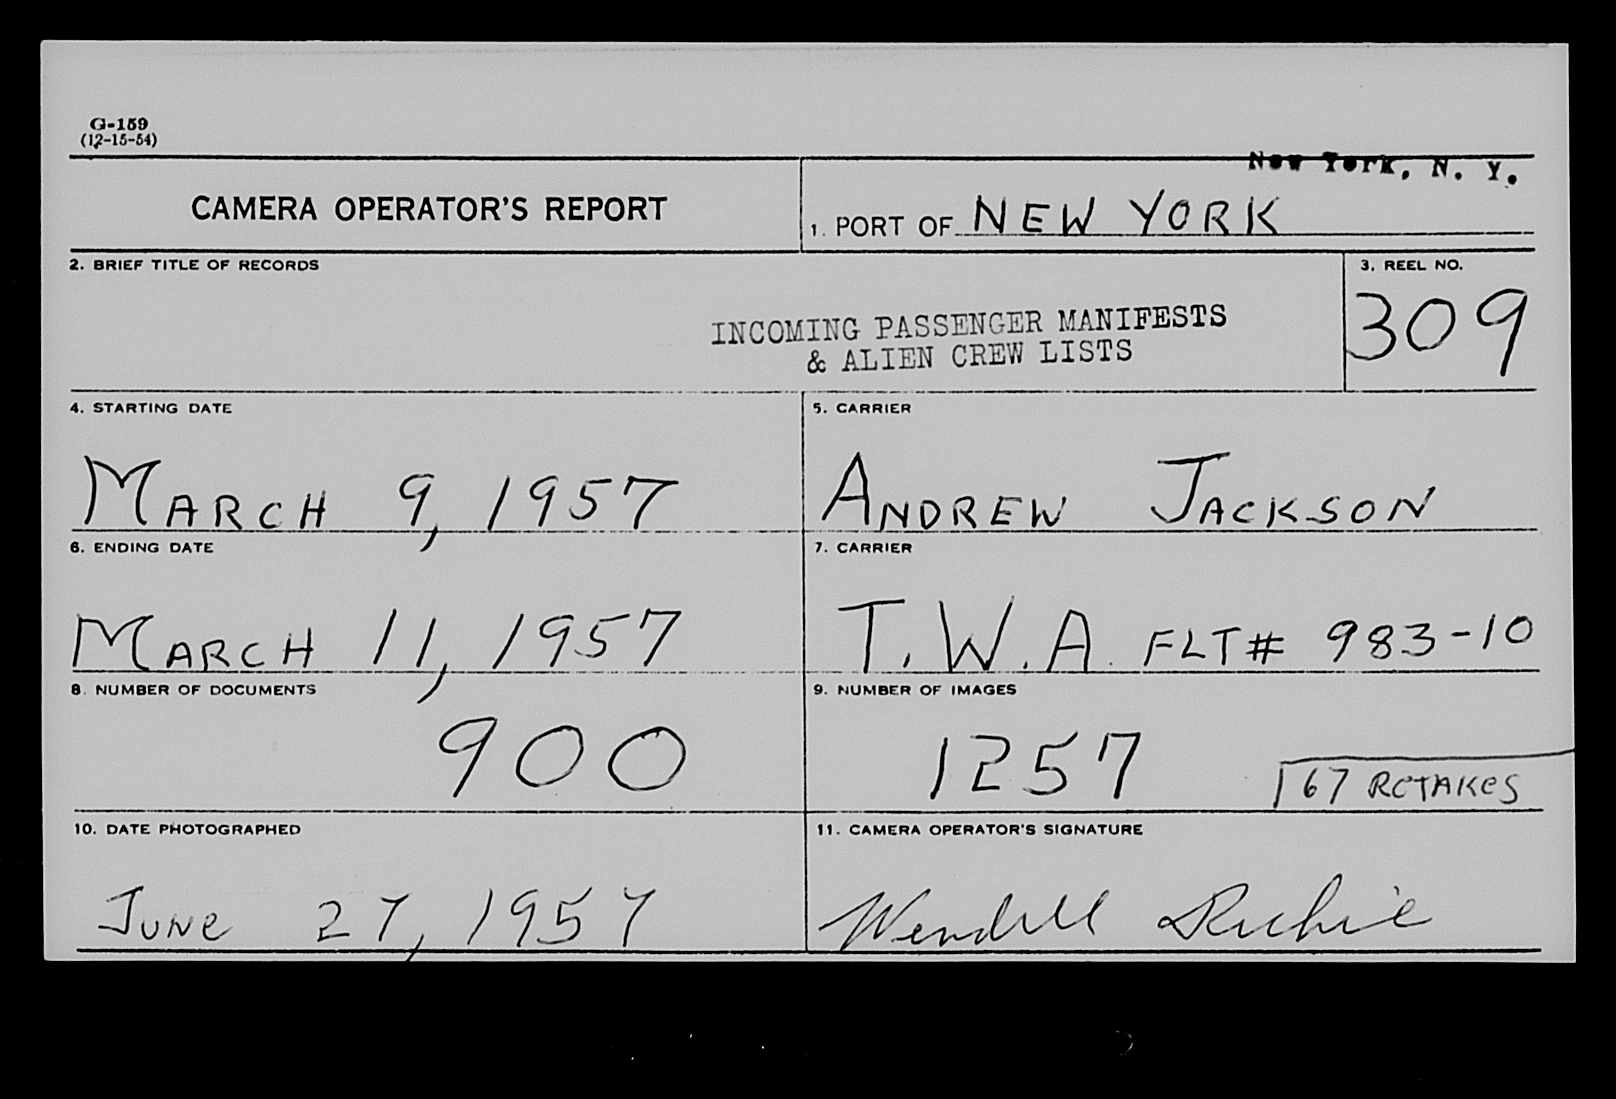 G-159
(12-15-54)
New York, N. Y.
CAMERA OPERATOR'S REPORT
1. PORT OF NEW YORK
2. BRIEF TITLE OF RECORDS
INCOMING PASSENGER MANIFESTS
& ALIEN CREW LISTS
3. REEL NO.
309
4. STARTING DATE
MARCH 9, 1957
5. CARRIER
ANDREW JACKSON
6. ENDING DATE
MARCH 11, 1957
7. CARRIER
T.W.A. FLT# 983-10
8. NUMBER OF DOCUMENTS
900
9. NUMBER OF IMAGES
1257
67 RETAKES
10. DATE PHOTOGRAPHED
JUNE 27, 1957
11. CAMERA OPERATOR'S SIGNATURE
Wendell